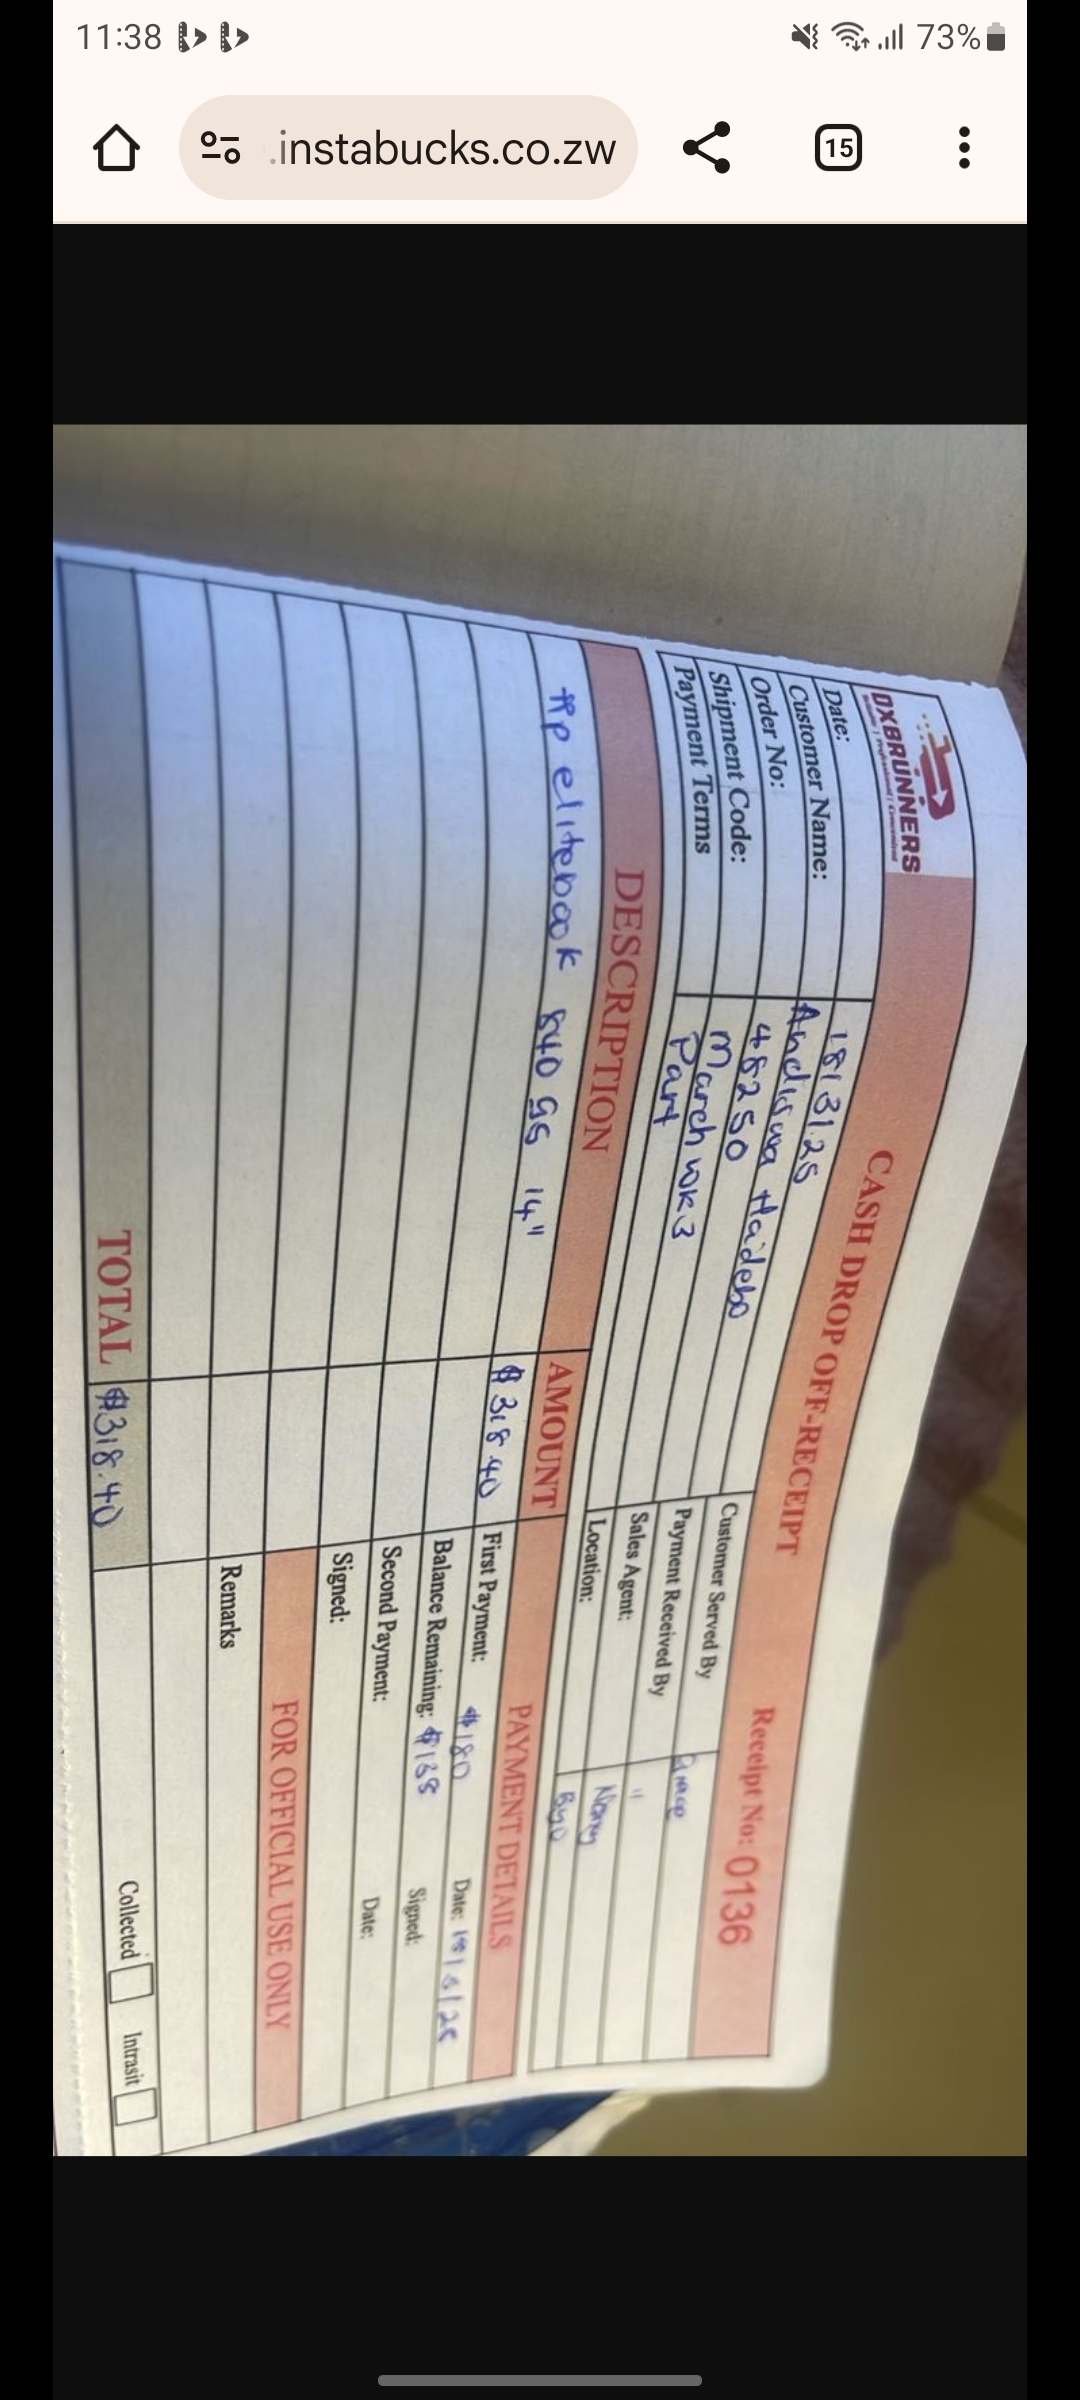 11:38
73%
.instabucks.co.zw
15
DXBRUNNERS
CASH DROP OFF-RECEIPT
Receipt No: 0136
Date: 18/3/25
Customer Name:
Order No: 48250
Shipment Code: March wk3
Payment Terms Part
Customer Served By
Payment Received By "
Sales Agent:
Location: Byo
DESCRIPTION AMOUNT PAYMENT DETAILS
Hp elitebook 840 G5 14" $318.40
First Payment: $180 Date:
Balance Remaining: $138 Signed:
Second Payment: Date:
Signed:
FOR OFFICIAL USE ONLY
Remarks
TOTAL $318.40
Collected Intrasit